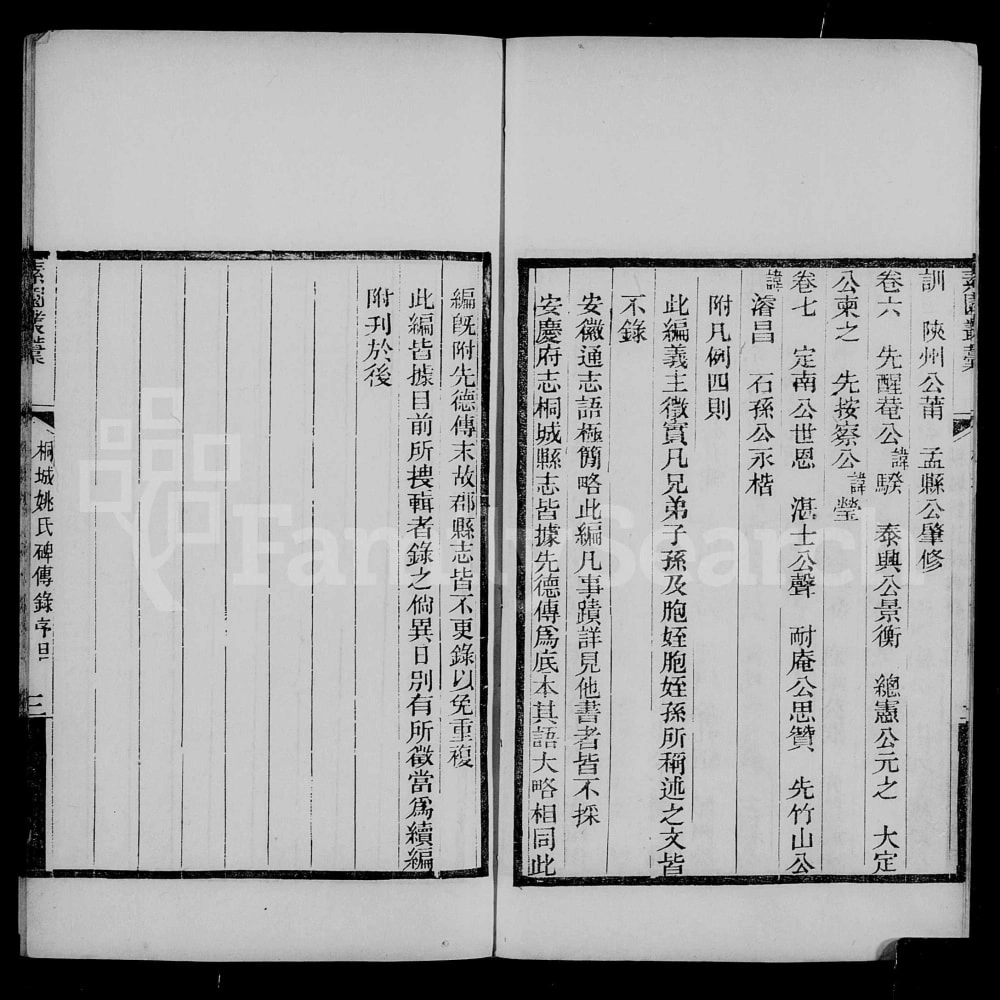 訓　陝州公莆　孟縣公肇修
卷六　先醒菴公諱騤　泰興公景衡　總憲公元之　大定
公柬之　先按察公諱瑩
卷七　定南公世恩　湛士公聲　耐庵公思贊　先竹山公
諱濬昌　石孫公永楷
附凡例四則
此編義主徵實凡兄弟子孫及胞姪胞姪孫所稱述之文皆
不錄
安徽通志語極簡略此編凡事蹟詳見他書者皆不採
安慶府志桐城縣志皆據先德傳爲底本其語大略相同此
編旣附先德傳末故郡縣志皆不更錄以免重複
此編皆據目前所搜輯者錄之倘異日別有所徵當爲續編
附刊於後
素園叢稾
桐城姚氏碑傳錄序目
三
FamilySearch